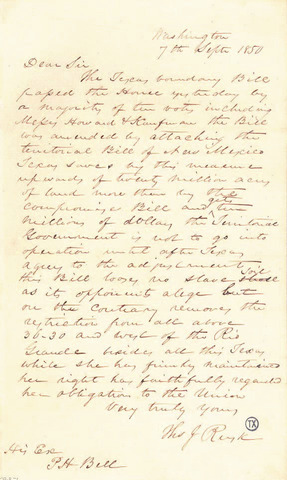 Washington
7th Septr 1850
Dear Sir
The Texas boundary Bill
passed the House yesterday by
a majority of ten votes including
Messrs Howard & Kaufman the Bill
was amended by attaching the
territorial Bill of New Mexico
Texas saves by this measure
upwards of twenty million acres
of land more than by the
compromise Bill and gets ten
millions of dollars the Territorial
Government is not to go into
operation until after Texas
agrees to the adjustment
this Bill looses no slave soil
as its opponents alege but
on the contrary removes the
restriction from all above
36-30 and west of the Rio
Grande besides all this Texas
while she has firmly maintained
her right has faithfully regarded
her obligation to the Union
Very truly yours
Tho J Rusk
TX
His Ex
P H Bell